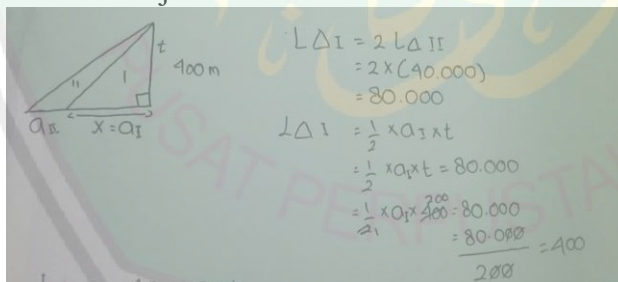 t
400 m
II
I
a_II
x = a_I
L△I = 2 L△II
= 2 × (40.000)
= 80.000
L△I = 1/2 × a_I × t
= 1/2 × a_I × t = 80.000
= 1/2 × a_I × 400 = 80.000
200
1
= 80.000 / 200 = 400
PUSAT PERPUSTA